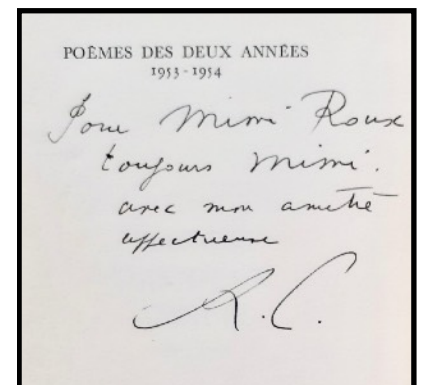 POÈMES DES DEUX ANNÉES
1953-1954
Pour Mimi Roux
toujours Mimi.
avec mon amitié
affectueuse
R. C.